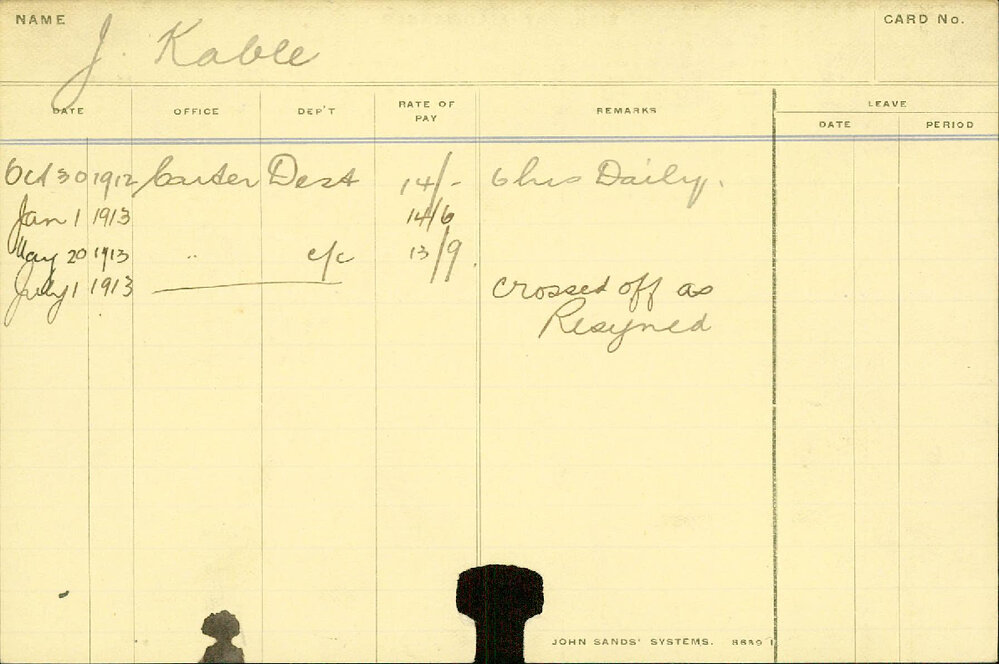 NAME J. Kable CARD No.
DATE OFFICE DEP'T RATE OF PAY REMARKS LEAVE
DATE PERIOD
Oct 30 1912 Carter Dest 14/- 6 hrs Daily.
Jan 1 1913 14/6
May 20 1913 " c/c 13/9
July 1 1913 Crossed off as
Resigned
JOHN SANDS' SYSTEMS. 8689